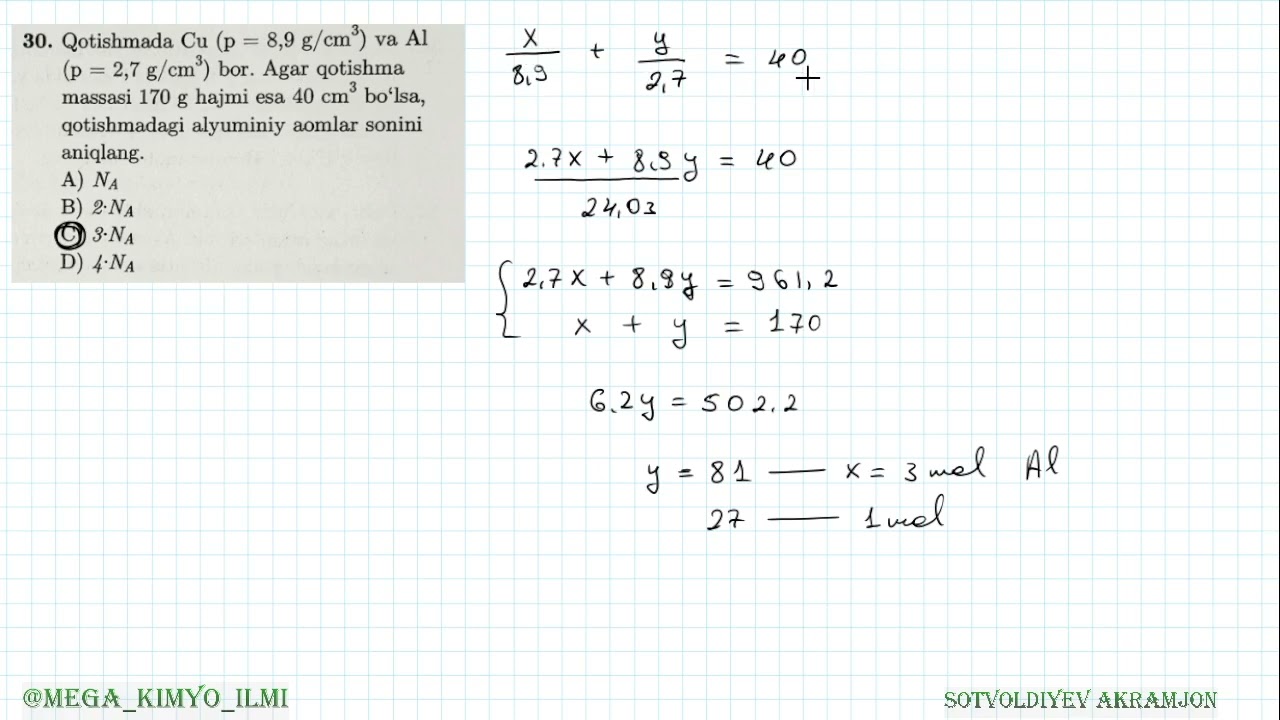 30. Qotishmada Cu (p = 8,9 g/cm³) va Al
(p = 2,7 g/cm³) bor. Agar qotishma
massasi 170 g hajmi esa 40 cm³ bo‘lsa,
qotishmadagi alyuminiy aomlar sonini
aniqlang.
A) N_A
B) 2·N_A
C) 3·N_A
D) 4·N_A
x/8,9 + y/2,7 = 40
(2.7x + 8,9y)/24,03 = 40
2,7x + 8,9y = 961,2
x + y = 170
6.2y = 502.2
y = 81 — x = 3 mol Al
27 — 1 mol
@MEGA_KIMYO_ILMI
SOTVOLDIYEV AKRAMJON